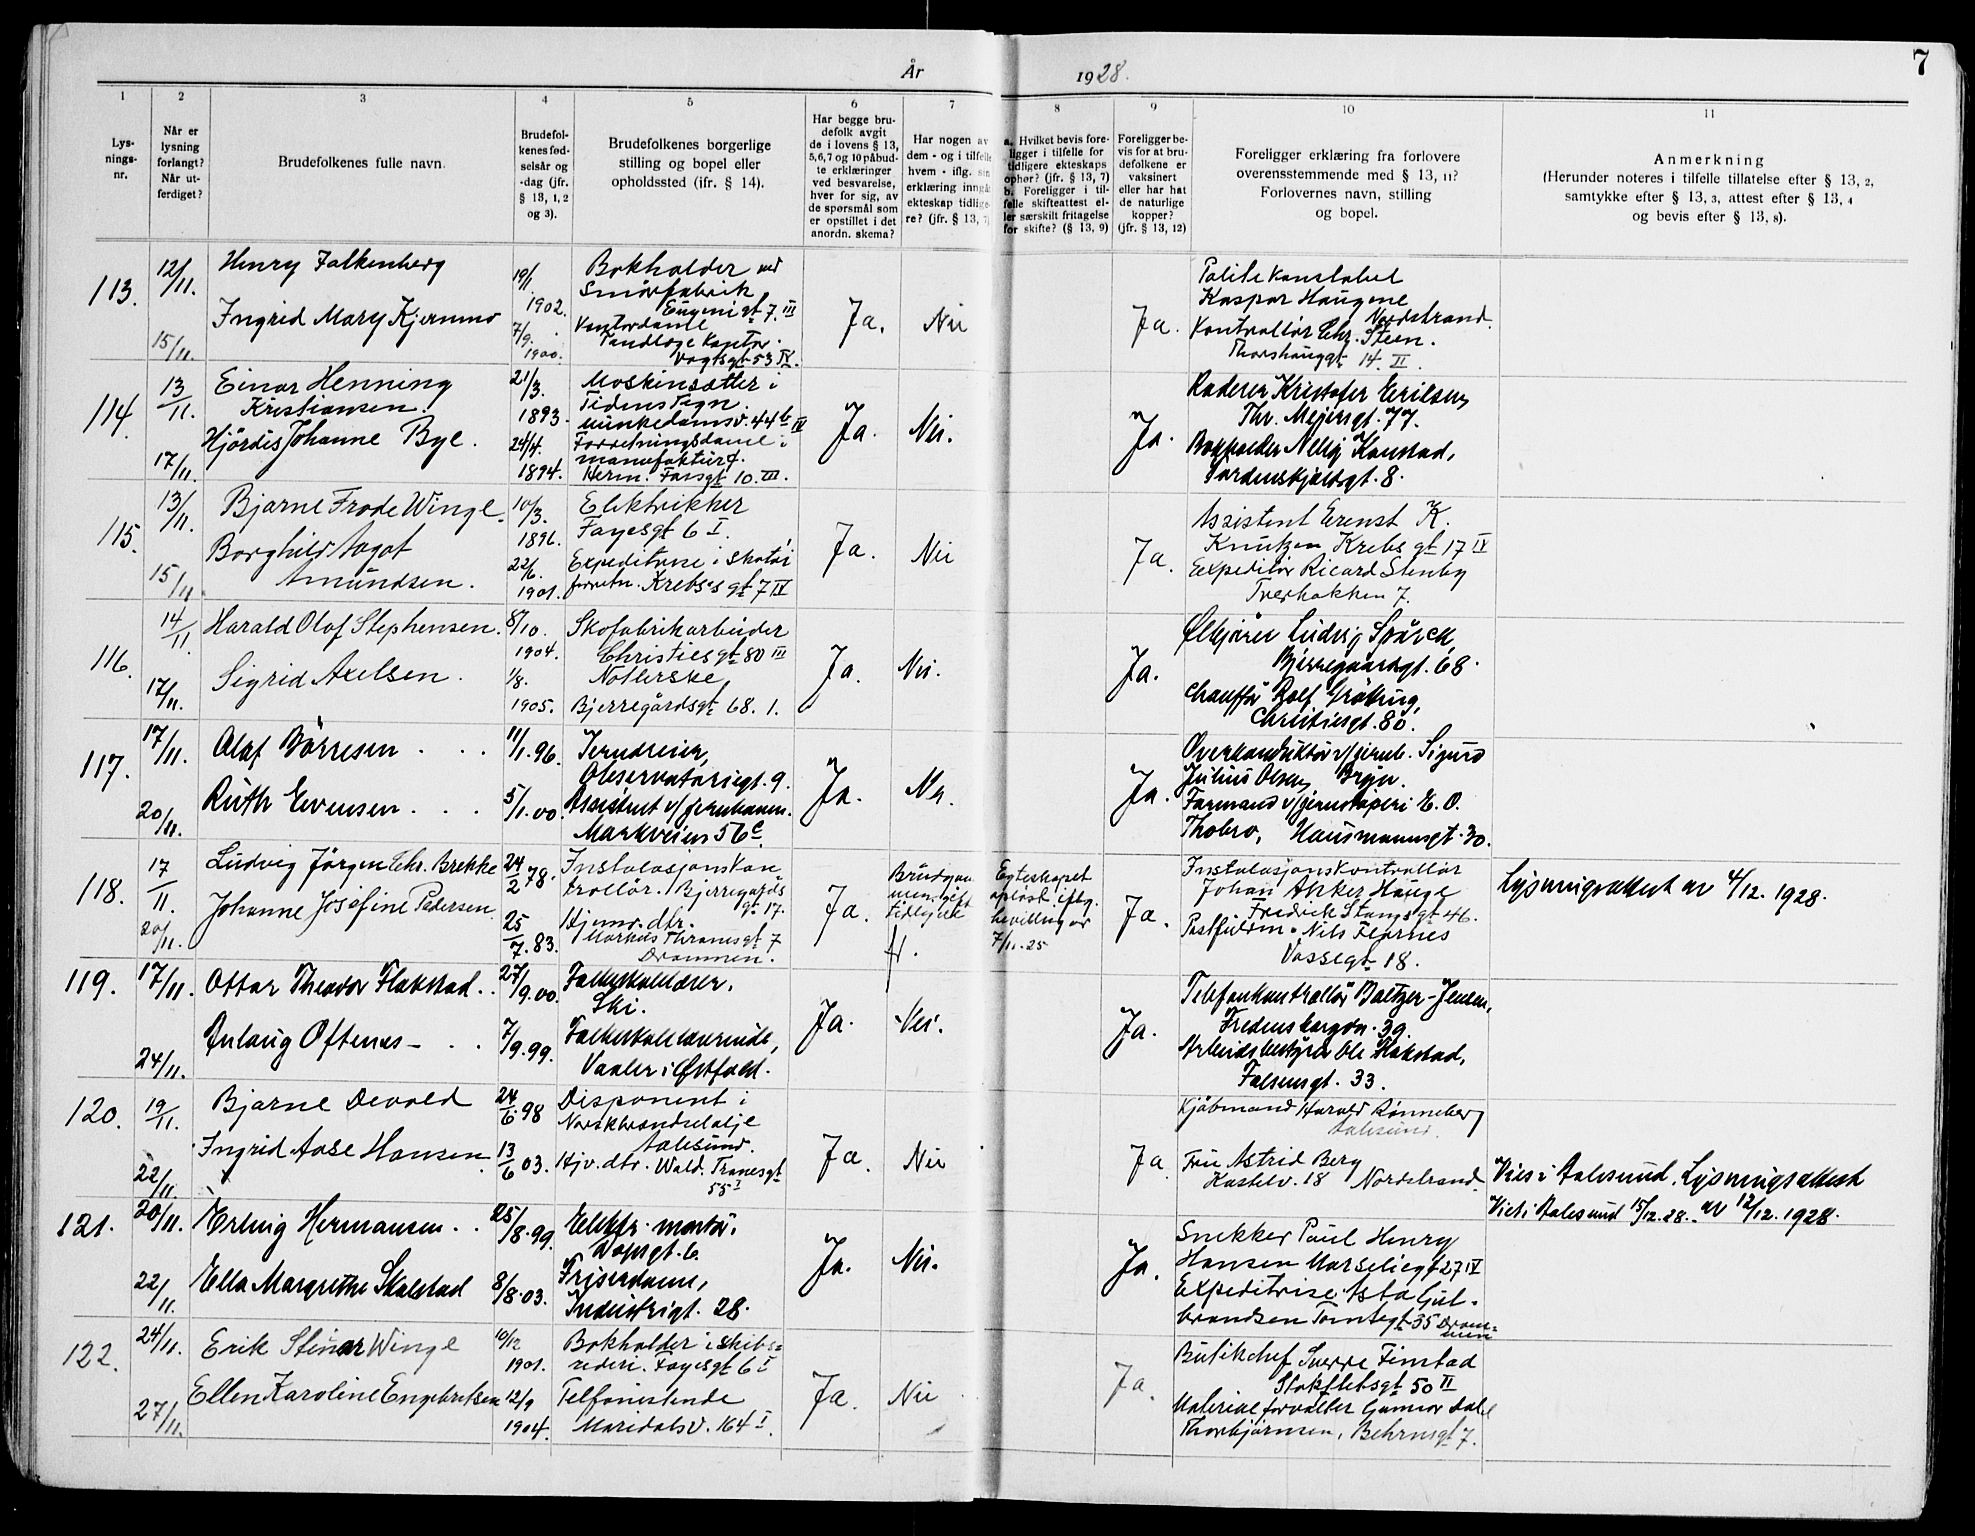 År 1928.
7
1 2 3 4 5 6 7 8 9 10 11
Lys-
nings-
nr.
Når er
lysning
forlangt?
Når ut-
ferdiget?
Brudefolkenes fulle navn.
Brudefol-
kenes fød-
selsår og
-dag (jfr.
§ 13, 1, 2
og 3).
Brudefolkenes borgerlige
stilling og bopel eller
opholdssted (ifr. § 14).
Har begge bru-
defolk avgit
de i lovens § 13,
5, 6, 7 og 10 påbud-
te erklæringer
ved besvarelse,
hver for sig, av
de spørsmål som
er opstillet i det
anordn. skema?
Har nogen av
dem - og i tilfelle
hvem - iflg. sin
erklæring inngå
ekteskap tidlige-
re? (jfr. § 13, 7)
a. Hvilket bevis fore-
ligger i tilfelle for
tidligere ekteskaps
ophør? (jfr. § 13, 7)
b. Foreligger i til-
felle skifteattest el-
ler særskilt fritagelse
for skifte? (§ 13, 9)
Foreligger be-
vis for at bru-
defolkene er
vaksinert
eller har hat
de naturlige
kopper?
(jfr. § 13, 12)
Foreligger erklæring fra forlovere
overensstemmende med § 13, 11?
Forlovernes navn, stilling
og bopel.
Anmerkning
(Herunder noteres i tilfelle tillatelse efter § 13, 2,
samtykke efter § 13, 3, attest efter § 13, 4
og bevis efter § 13, 8).
113.
12/11.
15/11.
Henry Falkenberg
Ingrid Mary Kjernmo
19/1
1902.
7/9.
1900.
Bokholder ved
Smörfabrik
Eugenigt 7. III
Kontordame
Tandlæge Kontor.
Vogtsgt 53 IV.
Ja.
Nei
Ja.
Politikonstabel
Kaspar Haugene
Nordstrand.
Kontrollør Chr. Steen.
Thorshauggt 14. II
114.
13/11.
17/11.
Einar Henning
Kristiansen.
Hjördis Johanne Bye.
21/3.
1893.
24/4.
1894.
Maskinsætter i
Tidens Tegn.
Munkedamsv. 44 b IV
Forretningsdame i
manufakturf.
Herm. Fossgt 10. III.
Ja.
Nei.
Ja.
Raderer Kristofer Eriksen,
Thv. Meyersgt. 77.
Bokholder Nelly Konstad,
Tordenskjoldsgt. 8.
115.
13/11.
15/11.
Bjarne Frode Winge.
Borghild Aagot
Amundsen.
10/3.
1896.
22/6.
1901.
Elektrikker
Fayesgt 6 I.
Expeditrise i Skotöi
forretn. Krebs's gt 7 IV
Ja.
Nei
Ja.
Assistent Ernst K.
Knutzen Krebs gt 17 IV
Expeditör Ricard Stenby
Tverbakken 7.
116.
14/11
17/11.
Harald Olaf Stephensen.
Sigrid Axelsen.
8/10.
1904.
1/8.
1905.
Skofabrikarbeider
Christiesgt 80 III
Notlerske
Bjerregårdsgt 68. 1.
Ja.
Nei.
Ja.
Ølkjører Ludvig Spörck,
Bjerregaardsgt. 68.
Chauffør Rolf Gröting,
Christiesgt. 80.
117.
17/11.
20/11.
Olaf Børresen . . .
Ruth Evensen . . .
11/1.96.
5/1.00.
Jerndreier,
Observatoriegt. 9.
Assistent v/ jernbanen.
Markveien 56 c.
Ja.
Nei.
Ja.
Overkonduktör v/jernb. Sigurd
Julius Olsen, Bryn.
Formand v/jernstøperi E. O.
Thobro, Hausmannsgt. 30.
118.
17/11.
20/11.
Ludvig Jörgen Chr. Brekke
Johanne Josefine Pedersen.
24/2 78.
25/7.83.
Instalasjonskon
trollør. Bjerregårds
gt 17.
Hjemv. dtr.
Markus Thranesgt 7
Drammen.
Ja.
Brudgom
men gift
tidligere
Egteskapet
opløst iflg.
bevilling av
7/11.25
Ja.
Instalasjonskontrollør
Johan Anker Hauge
Fredrik Stangsgt 46.
Postfuldm. Nils Flornes
Vossegt 18.
Lysningsattest av 4/12. 1928.
119.
17/11.
24/11.
Ottar Theodor Flakstad . .
Anlaug Oftenæs - . .
27/9.00.
7/9.99.
Folkeskolelærer,
Ski.
Folkeskolelærerinde,
Vaaler i Østfold.
Ja.
Nei.
Ja.
Telefonkontrollör Baltzer-Jensen,
Fredensborgvn. 39.
Arbeidsbestyrer Ole Flakstad,
Falsensgt. 33.
120.
19/11.
22/11
Bjarne Devold
Ingrid Aase Hansen.
24/6.98
13/6 03.
Disponent i
Norsk brændselolje
Aalesund.
Hjv. dtr. Wald. Tranesgt
55 I
Ja.
Nei
Ja
Kjöbmand Harald Rønneberg
Aalesund.
Frú Astrid Berg
Kastelv. 18 Nordstrand.
Vies i Aalesund. Lysningsattest
Viet i Aalesund 15/12.28. av 12/12. 1928.
121.
20/11.
22/11.
Erling Hermansen . .
Ella Margrethe Skalstad
25/8.99.
8/8.03.
Elektr. montör.
Frisördame,
Industrigt. 28.
Ja.
Nei.
Ja.
Snekker Paul Henry
Hansen Marseliegt 27 IV
Expeditrise Asta Gul-
brandsen Tomtegt 35 Dram-
men
122.
24/11.
27/11.
Erik Steinar Winge
Ellen Karoline Engebretsen
10/12
1901.
12/9
1904.
Bokholder i skibs-
rederi. Fayesgt 6 I
Telfonistinde
Maridalsv. 164 I.
Ja.
Nei
Ja.
Butikchef Sverre Finstad
Stokfletsgt 50 II
Materialforvalter Gunnar Dahl
Thorbjörnsen, Behrnsgt 7.